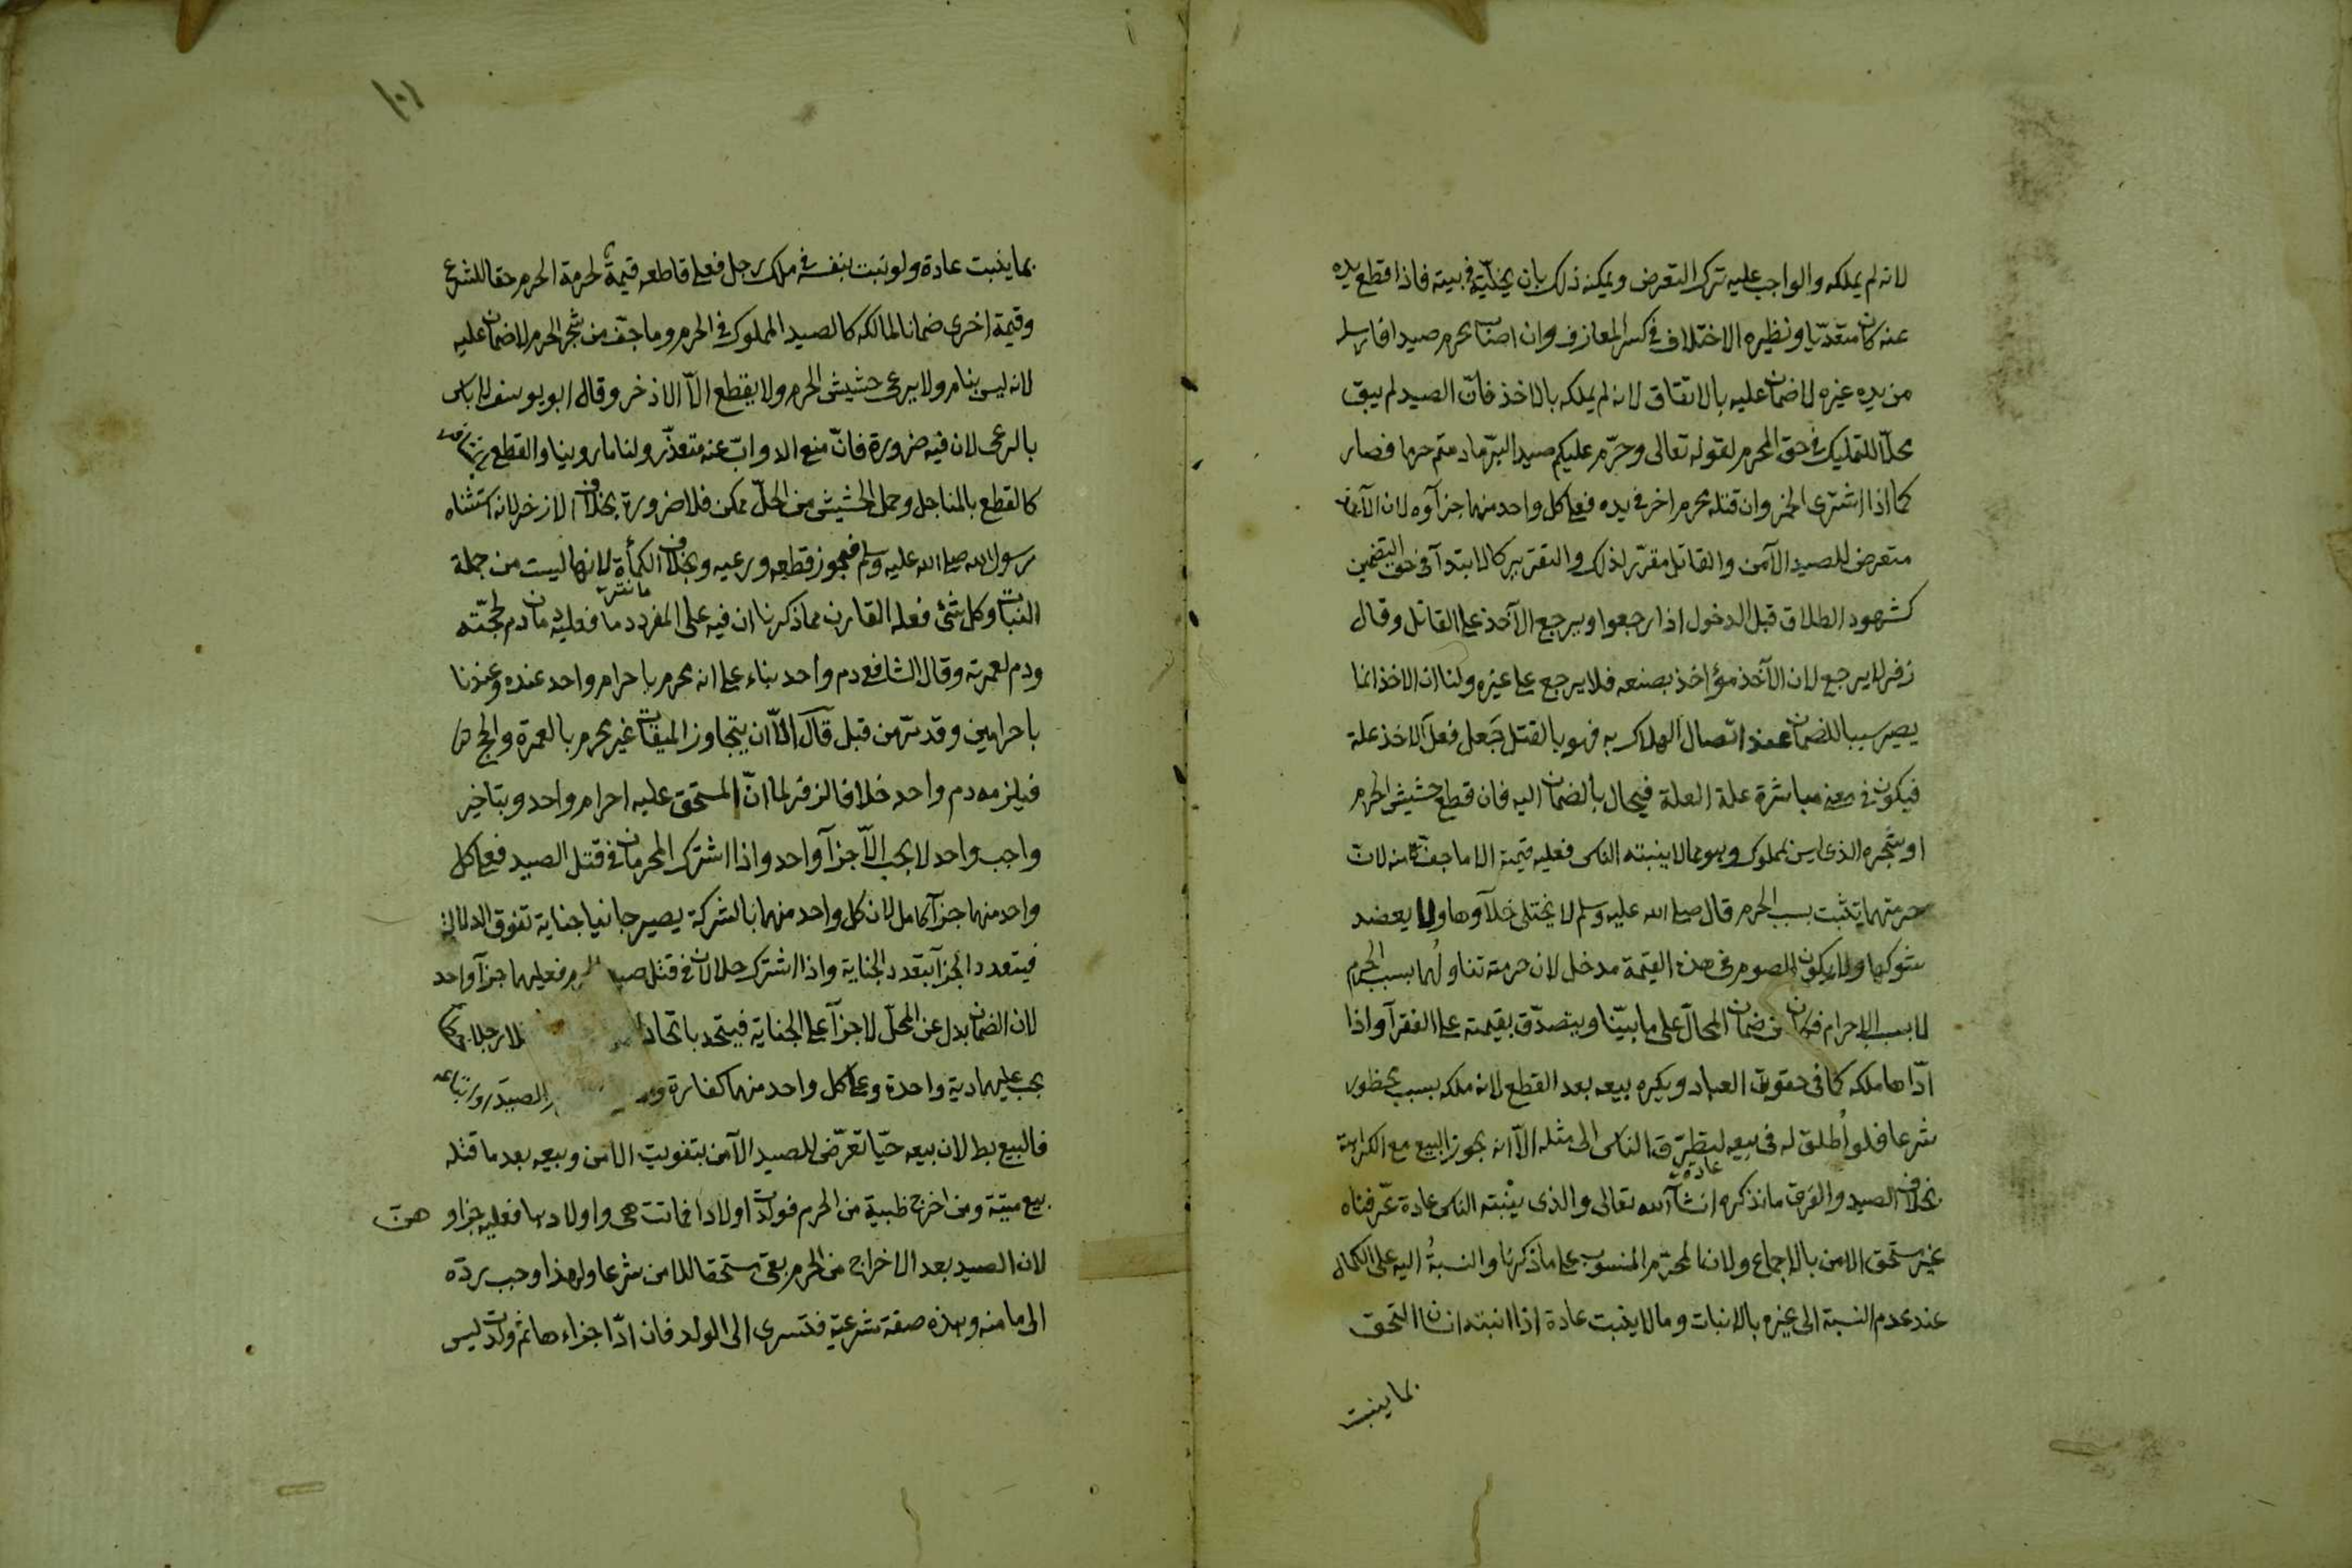 لانه لم يملكه والواجب عليه ترك التعرض ويمكنه ذلك بان يخليه فى بيته فاذا قطع يده
عنه كان متعديا ونظيره الاختلاف فى كسر المعازف وان اصاب محرم صيدا فارسله
من يده غيره لا ضمان عليه بالاتفاق لانه لم يملكه بالاخذ فانّ الصيد لم يبق
محلّا للتمليك فى حق المحرم لقوله تعالى وحرّم عليكم صيد البرّ ما دمتم حرما فصار
كما اذا اشترى الخمر وان قتله محرم اخر فى يده فعلى كل واحد منهما جزآوه لان الآخذ
متعرض للصيد الآمن والقاتل مقرّر لذلك والتقرير كالابتدآ فى حق التضمين
كشهود الطلاق قبل الدخول اذا رجعوا ويرجع الآخذ على القاتل وقال
زفر لا يرجع لان الآخذ مؤاخذ بصنعه فلا يرجع على غيره ولنا ان الاخذ انما
يصير سببا للضمان عند اتّصال الهلاك به فهو بالقتل جَعل فعلَ الاخذ علة
فيكون فى معنى مباشرة علة العلة فيحال بالضمان اليه فان قطع حشيش الحرم
او شجره الذى ليس بمملوك وهو مما لا ينبته الناس فعليه قيمته الا ما جفّ منه لان
حرمتهما يثبت بسبب الحرم قال صلى الله عليه وسلم لا يختلى خلآوها ولا يعضد
شوكها ولا يكون للصوم فى هذه القيمة مدخل لان حرمة تناولُها بسبب الحرم
لا بسبب الاحرام فكان من ضمان المحالّ على ما بيّنا ويتصدّق بقيمته على الفقرآ واذا
ادّاها ملكه كما فى حقوق العباد ويكره بيعه بعد القطع لانه ملكه بسبب محظور
شرعا فلو اُطلق له فى بيعه لتطرّق الناس الى مثله الّا انه يجوز البيع مع الكراهة
بخلاف الصيد والفرق ما نذكره انشآ الله تعالى والذى ينبته الناس عادة عرفناه
غير مستحق الامن بالاجماع ولان المحرّم المنسوب على ما ذكرنا والنسبةُ اليه على الكمال
عند عدم النسبة الى غيره بالانبات وما لا ينبت عادة اذا انبته انسان التحق
بما ينبت
١٠١
بما ينبت عادة ولو نبت بنفسه فى ملك رجل فعلى قاطعه قيمة لحرمة الحرم حقا للشرع
وقيمة اخرى ضمانا لمالكه كالصيد المملوك فى الحرم وما جفّ من شجر الحرم لا ضمان عليه
لانه ليس بنام ولا يرعى حشيش الحرم ولا يقطع الّا الاذخر وقال ابو يوسف لا باس
بالرعى لان فيه ضرورة فانّ منع الدوابّ عنه متعذّر ولنا ما روينا والقطع
كالقطع بالمناجل وحمل الحشيش من الحلّ ممكن فلا ضرورة بخلاف الازخر لانه استثناه
رسول الله صلى الله عليه وسلم فيجوز قطعه ورعيه وبخلاف الكمأة لانها ليست من جملة
النبات وكل شئ فعله القارن مما ذكرنا ان فيه على المفرد دما فعليه دمان دم لحجّته
ودم لعمرته وقال الشافعى دم واحد بناء على انه محرم باحرام واحد عنده وعندنا
باحرامين وقد مرّ من قبل قال الّا ان يتجاوز الميقات غير محرم بالعمرة والحج
فيلزمه دم واحد خلافا لزفر لما انّ المستحق عليه احرام واحد وبتاخير
واجب واحد لا يجب الّا جزآ واحد واذا اشترك المحرمان فى قتل الصيد فعلى كل
واحد منهما جزآ كامل لان كل واحد منهما بالشركة يصير جانيا جناية تفوق الدلالة
فيتعدد الجزآ بتعدد الجناية واذا اشترك حلالان فى قتل صيد فعليهما جزآ واحد
لان الضمان بدل عن المحلّ لا جزآ على الجناية فيتحد باتحاد رجلا
يجب عليهما دية واحدة وعلى كل واحد منهما كفارة الصيد او ابتاعه
فالبيع بط لان بيعه حيّا تعرّض للصيد الآمن بتفويت الامن وبيعه بعد ما قتله
بيع ميتة ومن اخرج ظبية من الحرم فولدت اولادا فماتت هى واولادها فعليه جزاوهنّ
لان الصيد بعد الاخراج من الحرم بقى مستحقا للامن شرعا ولهذا وجب ردّه
الى مامنه وهذه صفة شرعية فتسرى الى الولد فان ادّا جزاءها ثم ولدت ليس